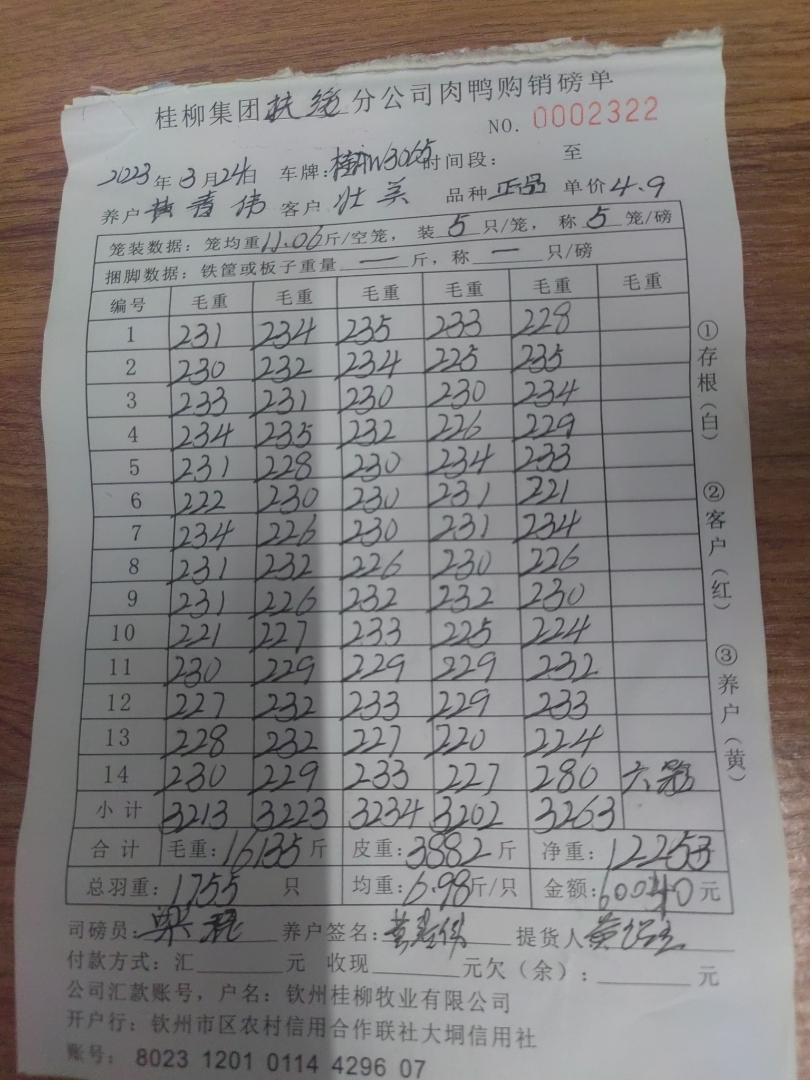 桂柳集团扶绥分公司肉鸭购销磅单
NO. 0002322
2023年3月24日 车牌:桂AW3065 时间段: 至
养户 黄春伟 客户 壮美 品种 正品 单价 4.9
笼装数据:笼均重11.06斤/空笼,装5只/笼,称5笼/磅
捆脚数据:铁筐或板子重量一斤,称一只/磅
编号 毛重 毛重 毛重 毛重 毛重 毛重
1 231 234 235 233 228
2 230 232 234 225 235
3 233 231 230 230 234
4 234 235 232 226 229
5 231 228 230 234 233
6 222 230 230 231 221
7 234 226 230 231 234
8 231 232 226 230 226
9 231 226 232 232 230
10 221 227 233 225 224
11 230 229 229 229 232
12 227 232 233 229 233
13 228 232 227 220 224
14 230 229 233 227 280 六笼
小计 3213 3223 3234 3202 3263
合计 毛重:16135斤 皮重:3882斤 净重:12253
总羽重:1755 只 均重:6.98斤/只 金额:60040元
司磅员:梁 养户签名:黄春伟 提货人黄
付款方式:汇 元 收现 元欠(余): 元
公司汇款账号,户名:钦州桂柳牧业有限公司
开户行:钦州市区农村信用合作联社大垌信用社
账号: 8023 1201 0114 4296 07
①存根(白)
②客户(红)
③养户(黄)